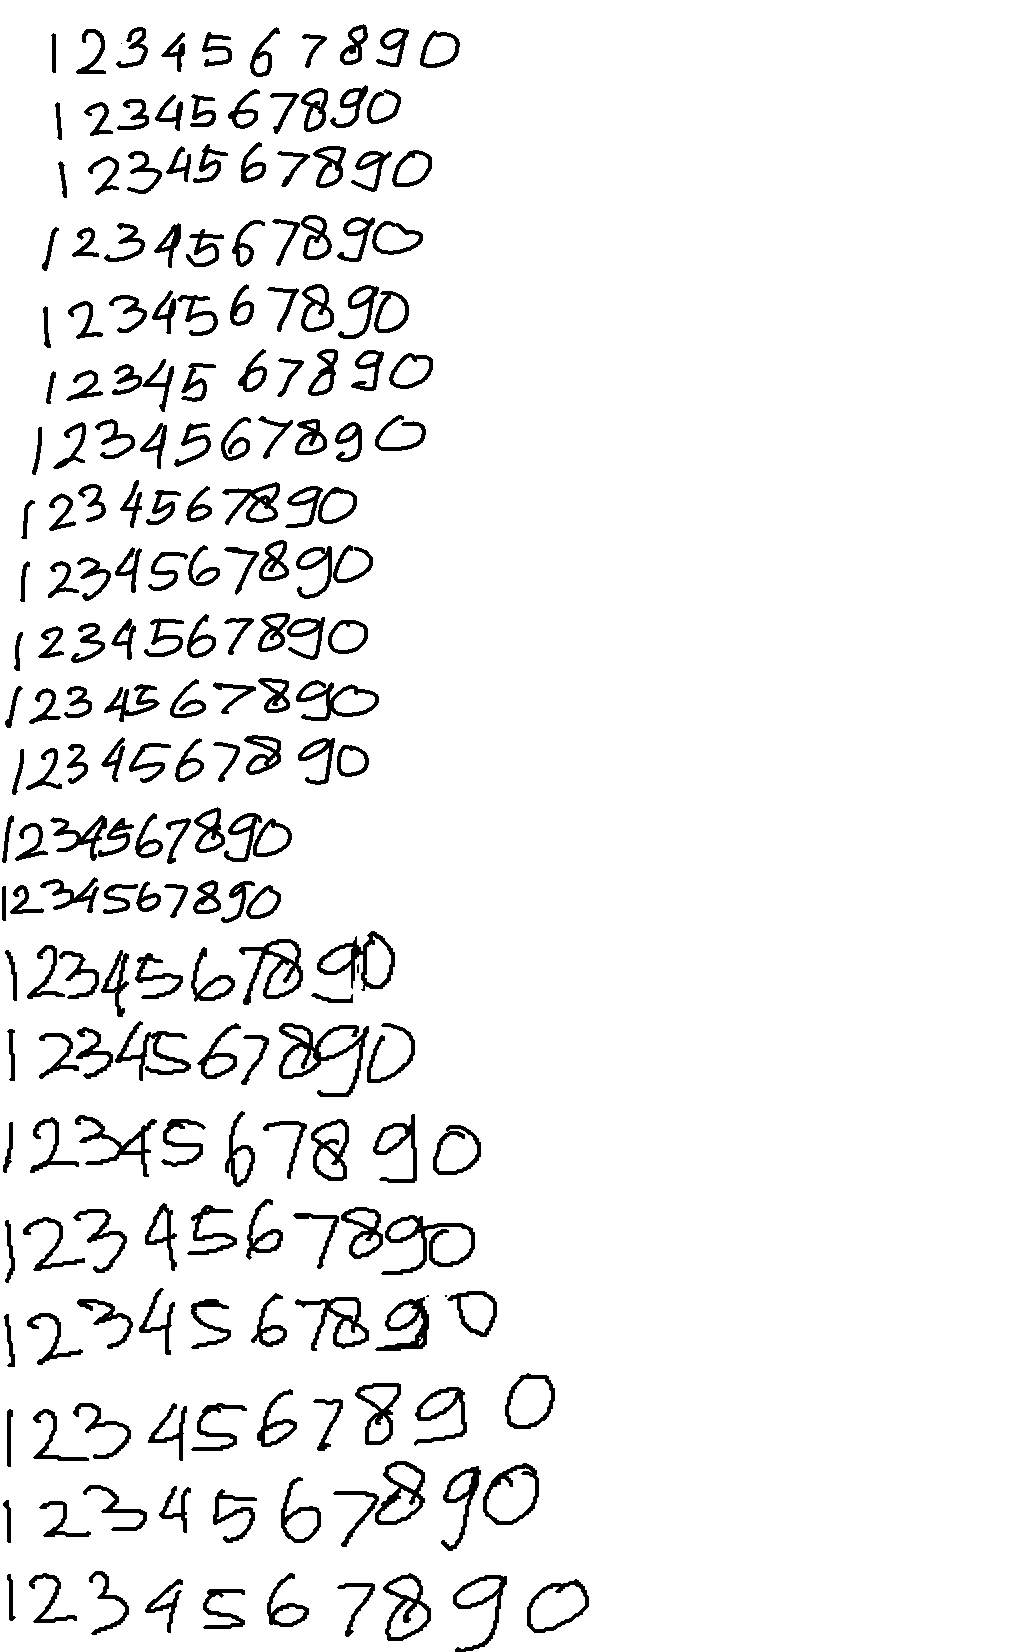 1234567890
1234567890
1234567890
1234567890
1234567890
1234567890
1234567890
1234567890
1234567890
1234567890
1234567890
1234567890
1234567890
1234567890
1234567890
1234567890
1234567890
1234567890
1234567890
1234567890
1234567890
1234567890